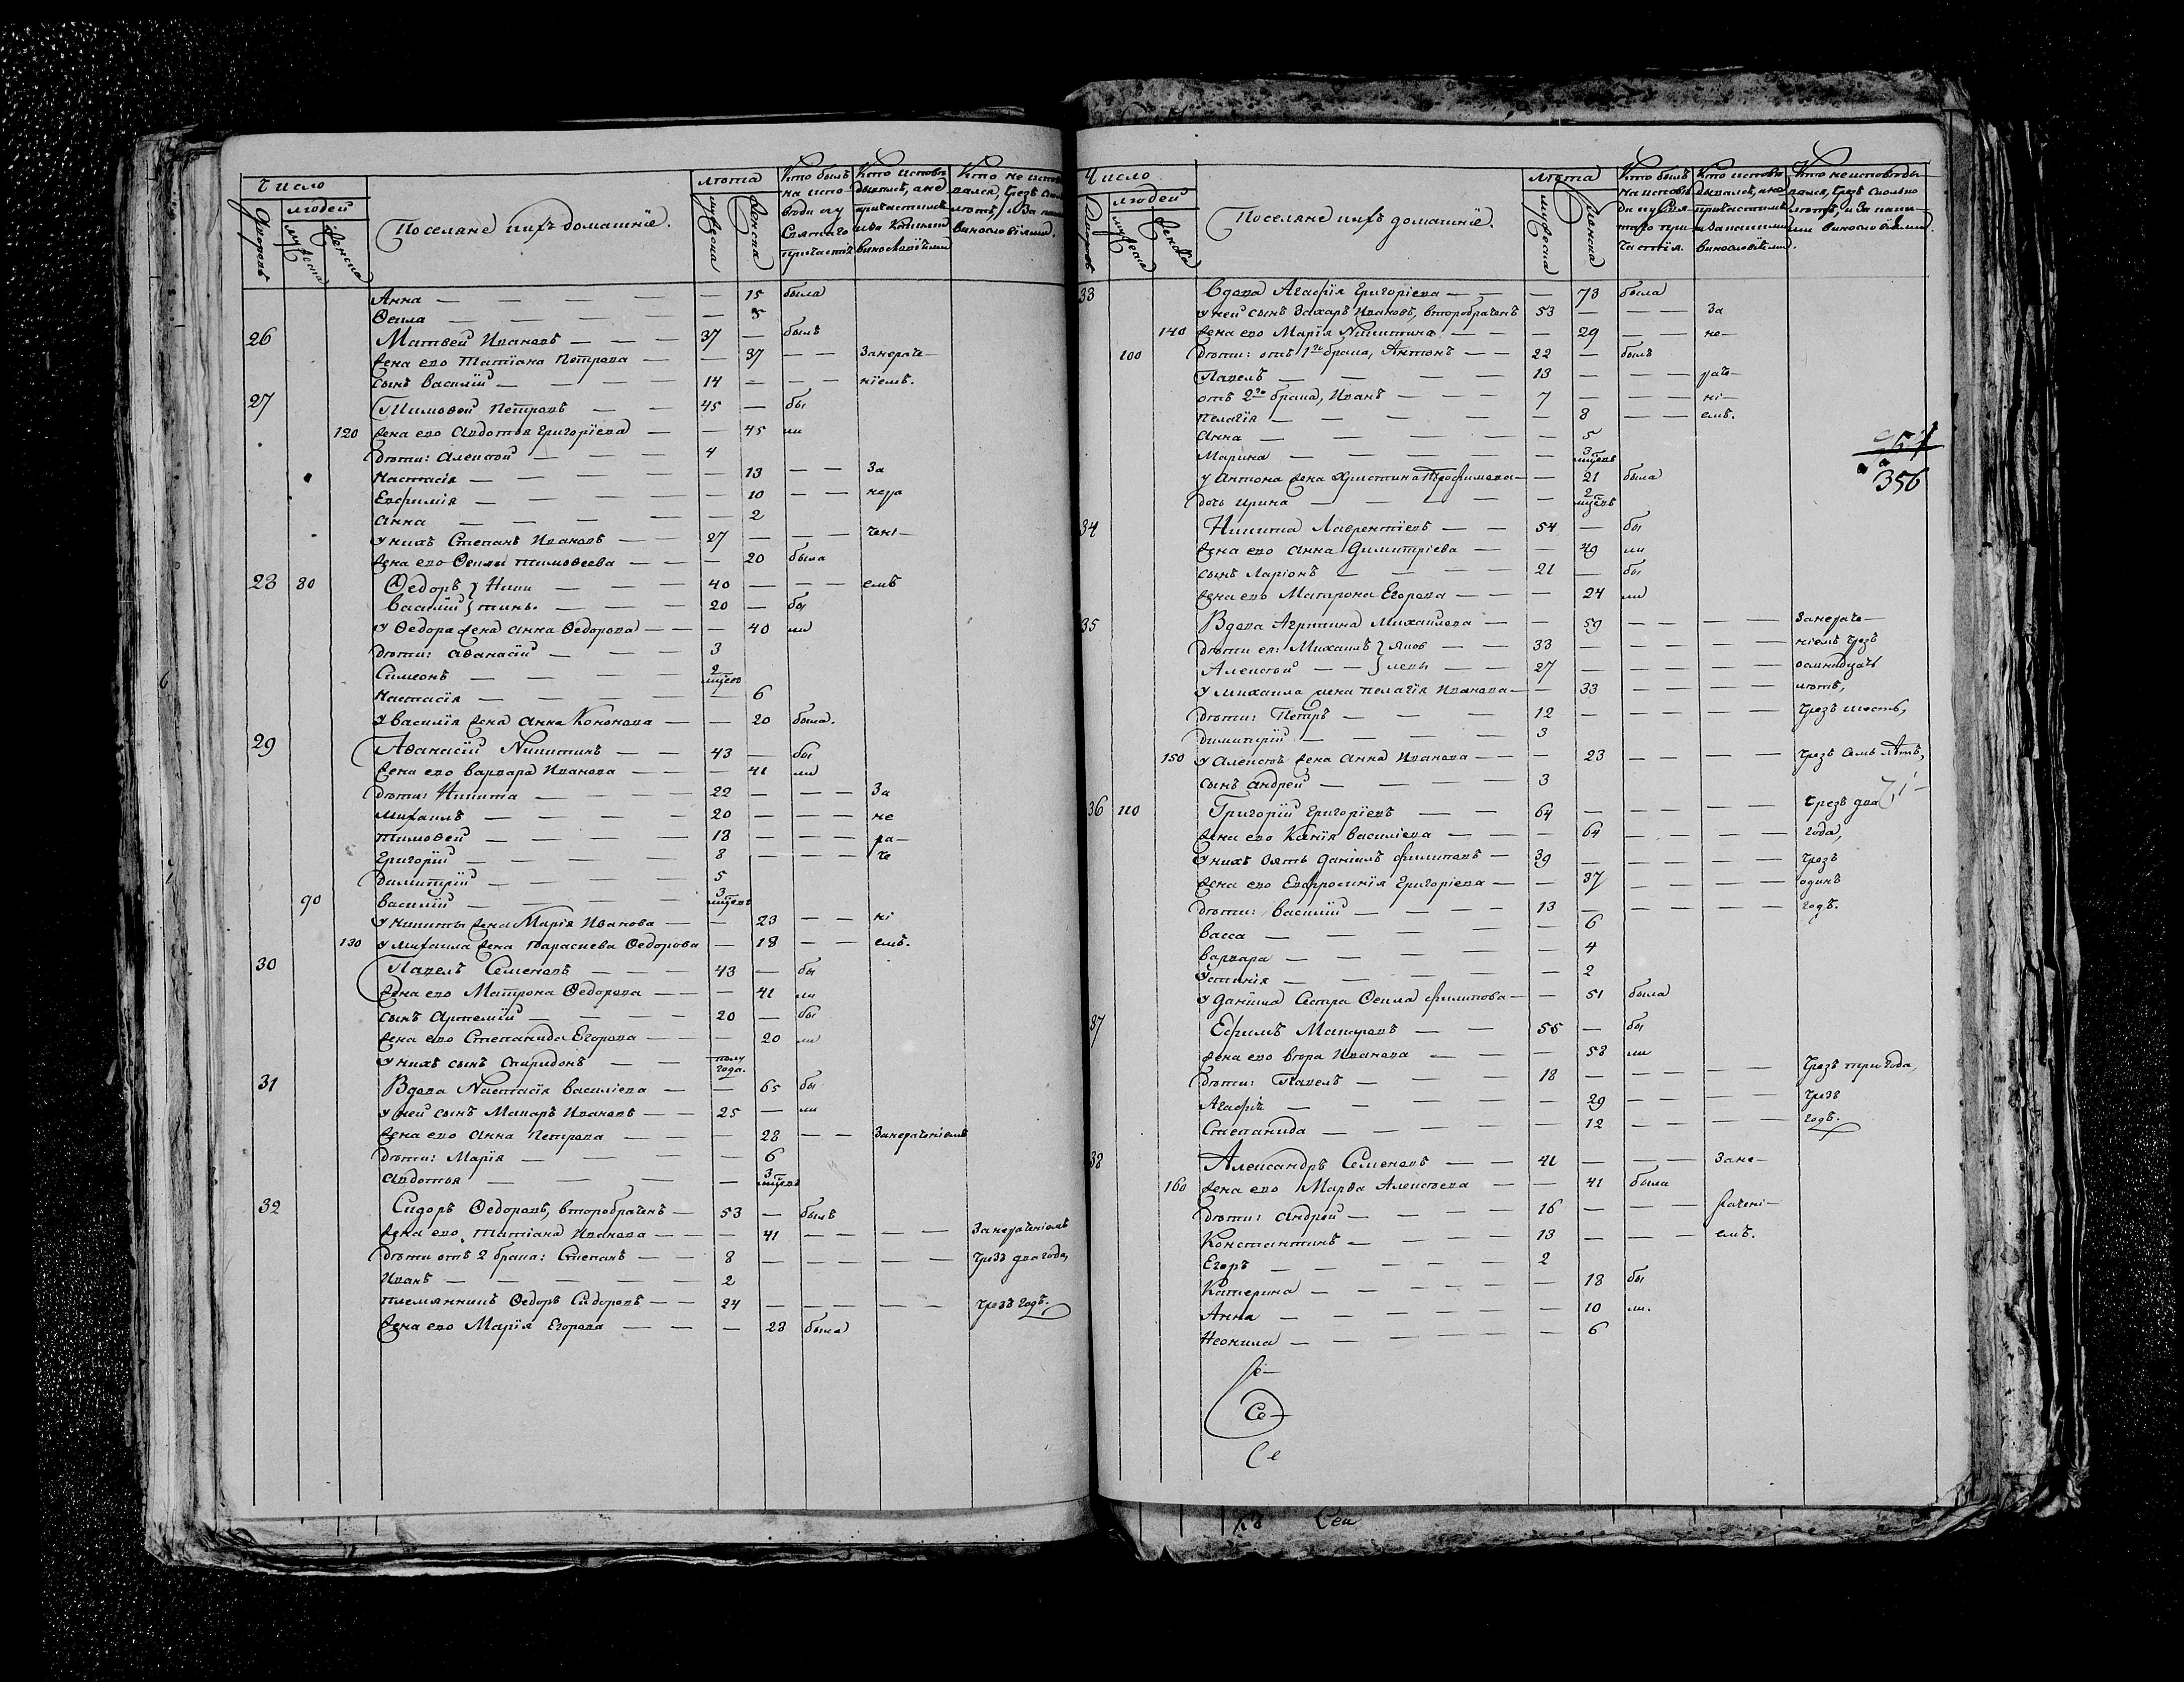 Число
людей
Дворовъ
мужеска
женска
Поселяне и ихъ домашніе.
лѣта
мужеска
женска
Кто былъ на исповѣди и у Святаго причастія
Кто исповѣдывался, а не причастился и за какимъ винословіемъ
Кто не исповѣдывался, чрезъ сколько лѣтъ, и за каким винословіями.
Анна — 15 была
Ѳекла — 5
26 Матвей Ивановъ — 37 — былъ
жена его Татіана Петрова — 37 — — Занераче—
сынъ Василій — 14 — — — ніемъ.
27 Тимоѳей Петровъ — 45 — бы
120 жена его Авдотья Григоріева — 45 ли
дѣти: Алексѣй — 4
Настасія — 13 — — За
Евфимія — 10 — — нера
Анна — 2
у нихъ Степанъ Ивановъ — 27 — — — чені—
жена его Ѳекла Тимоѳеева — 20 была
28 80 Ѳедоръ } Ники — 40 — — — емъ
Василій } тины. — 20 — бы
у Ѳедора жена Анна Ѳедорова — 40 ли
дѣти: Аѳанасій — 3
Симеонъ — 2 мцевъ
Настасія — 6
у Василія жена Анна Кононова — 20 была.
29 Аѳанасій Никитинъ — 43 — бы
жена его Варвара Иванова — 41 ли
дѣти: Никита — 22 — — — За
Михаилъ — 20 — — — не
Тимоѳей — 13 — — — ра—
Григорій — 8 — — — че
Димитрій — 5
90 Василій — 3 мцевъ
у Никиты жена Марія Иванова — 23 — — ні
130 у Михаила жена Парасцева Ѳедорова — 18 — — емъ.
30 Павелъ Семеновъ — 43 — бы
жена его Матрона Ѳедорова — 41 ли
сынъ Артемій — 20 — бы
жена его Степанида Егорова — 20 ли
у нихъ сынъ Спиридонъ — полу года.
31 Вдова Настасія Василіева — 65 бы
у ней сынъ Макаръ Ивановъ — 25 — ли
жена его Анна Петрова — 28 — — Занераченіемъ
дѣти: Марія — 6
Авдотья — 3 мцевъ
32 Сидоръ Ѳедоровъ, второбраченъ — 53 — былъ
жена его Татіана Иванова — 41 — — — Занераченіемъ
дѣти отъ 2 брака: Степанъ — 8 — — — — чрезъ два года,
Иванъ — 2
племянникъ Ѳедоръ Сидоровъ — 24 — — — — чрезъ годъ.
жена его Марія Егорова — 28 была
Число
людей
Дворовъ
мужеска
женска
Поселяне и ихъ домашніе.
лѣта
мужеска
женска
Кто былъ на исповѣди и у Святаго причастія.
Кто исповѣдывался, а не причастился и за какимъ винословіемъ.
Кто не исповѣдывался, чрезъ сколько лѣтъ, и за какими винословіями.
33 Вдова Агафія Григоріева — — 73 была
у ней сынъ Захаръ Ивановъ, второбраченъ 53 — — — За
140 жена его Марія Никитина — 29 — — не—
100 дѣти: отъ 1го брака, Антонъ — 22 — былъ
Павелъ — 13 — — — раче—
отъ 2го брака, Иванъ — 7 — — — ні—
Пелагія — 8 — — емъ.
Анна — 5
Марина — 3 мцевъ
у Антона жена Христина Трофимова — 21 была
дочь Ирина — 2 мцевъ
356
34 Никита Лаврентіевъ — 54 — бы
жена его Анна Димитріева — 49 ли
сынъ Ларіонъ — 21 — бы
жена его Матрона Егорова — 24 ли
35 Вдова Агрипина Михайлова — 59 — — — Занераче—
дѣти ея: Михаилъ } Яков — 33 — — — — ніемъ чрезъ
Алексѣй — } левы — 27 — — — — осмнадцать
у Михаила жена Пелагія Иванова — 33 — — — лѣтъ,
дѣти: Петръ — 12 — — — — чрезъ шесть,
Димитрій — 3
150 у Алексѣя жена Анна Иванова — 23 — — — чрезъ семь лѣтъ,
сынъ Андрей — 3
36 110 Григорій Григоріевъ — 64 — — — — чрезъ два
жена его Ксенія Василіева — 64 — — — года,
у нихъ зять Даніилъ Филиповъ — 39 — — — — чрезъ
жена его Евфросинія Григоріева — 37 — — — одинъ
дѣти: Василій — 13 — — — — годъ.
Васса — 6
Варвара — 4
Устинія — 2
у Даніила сестра Ѳекла Филипова — 51 была
37 Ефимъ — 55 — бы
жена его Вѣра Иванова — 58 ли
дѣти: Павелъ — 18 — — — — чрезъ три года,
Агафія — 29 — — — чрезъ
Степанида — 12 — — — годъ.
38 Александръ Семеновъ — 41 — — — Зане—
160 жена его Марѳа Алексѣева — 41 была
дѣти: Андрей — 16 — — — рачені—
Константинъ — 13 — — — емъ.
Егоръ — 2
Катерина — 18 бы
Анна — 10 ли.
Неонила — 6
Се—
Се